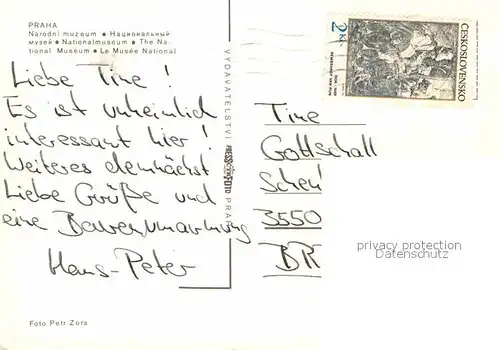 PRAHA
Národní muzeum ● Национальный
музей ● Nationalmuseum ● The Na-
tional Museum ● Le Musée National
Liebe Tine!
Es ist unheimlich
interessant hier!
Weiteres demnächst
Liebe Grüße und
eine Bärenumarmung
Hans-Peter
Foto Petr Zora
VYDAVATELSTVÍ PRESSFOTO PRAHA
2 Kčs
ČESKOSLOVENSKO
REMBRANDT VAN RIJN
Tine
Gottschall
3550
privacy protection
Datenschutz